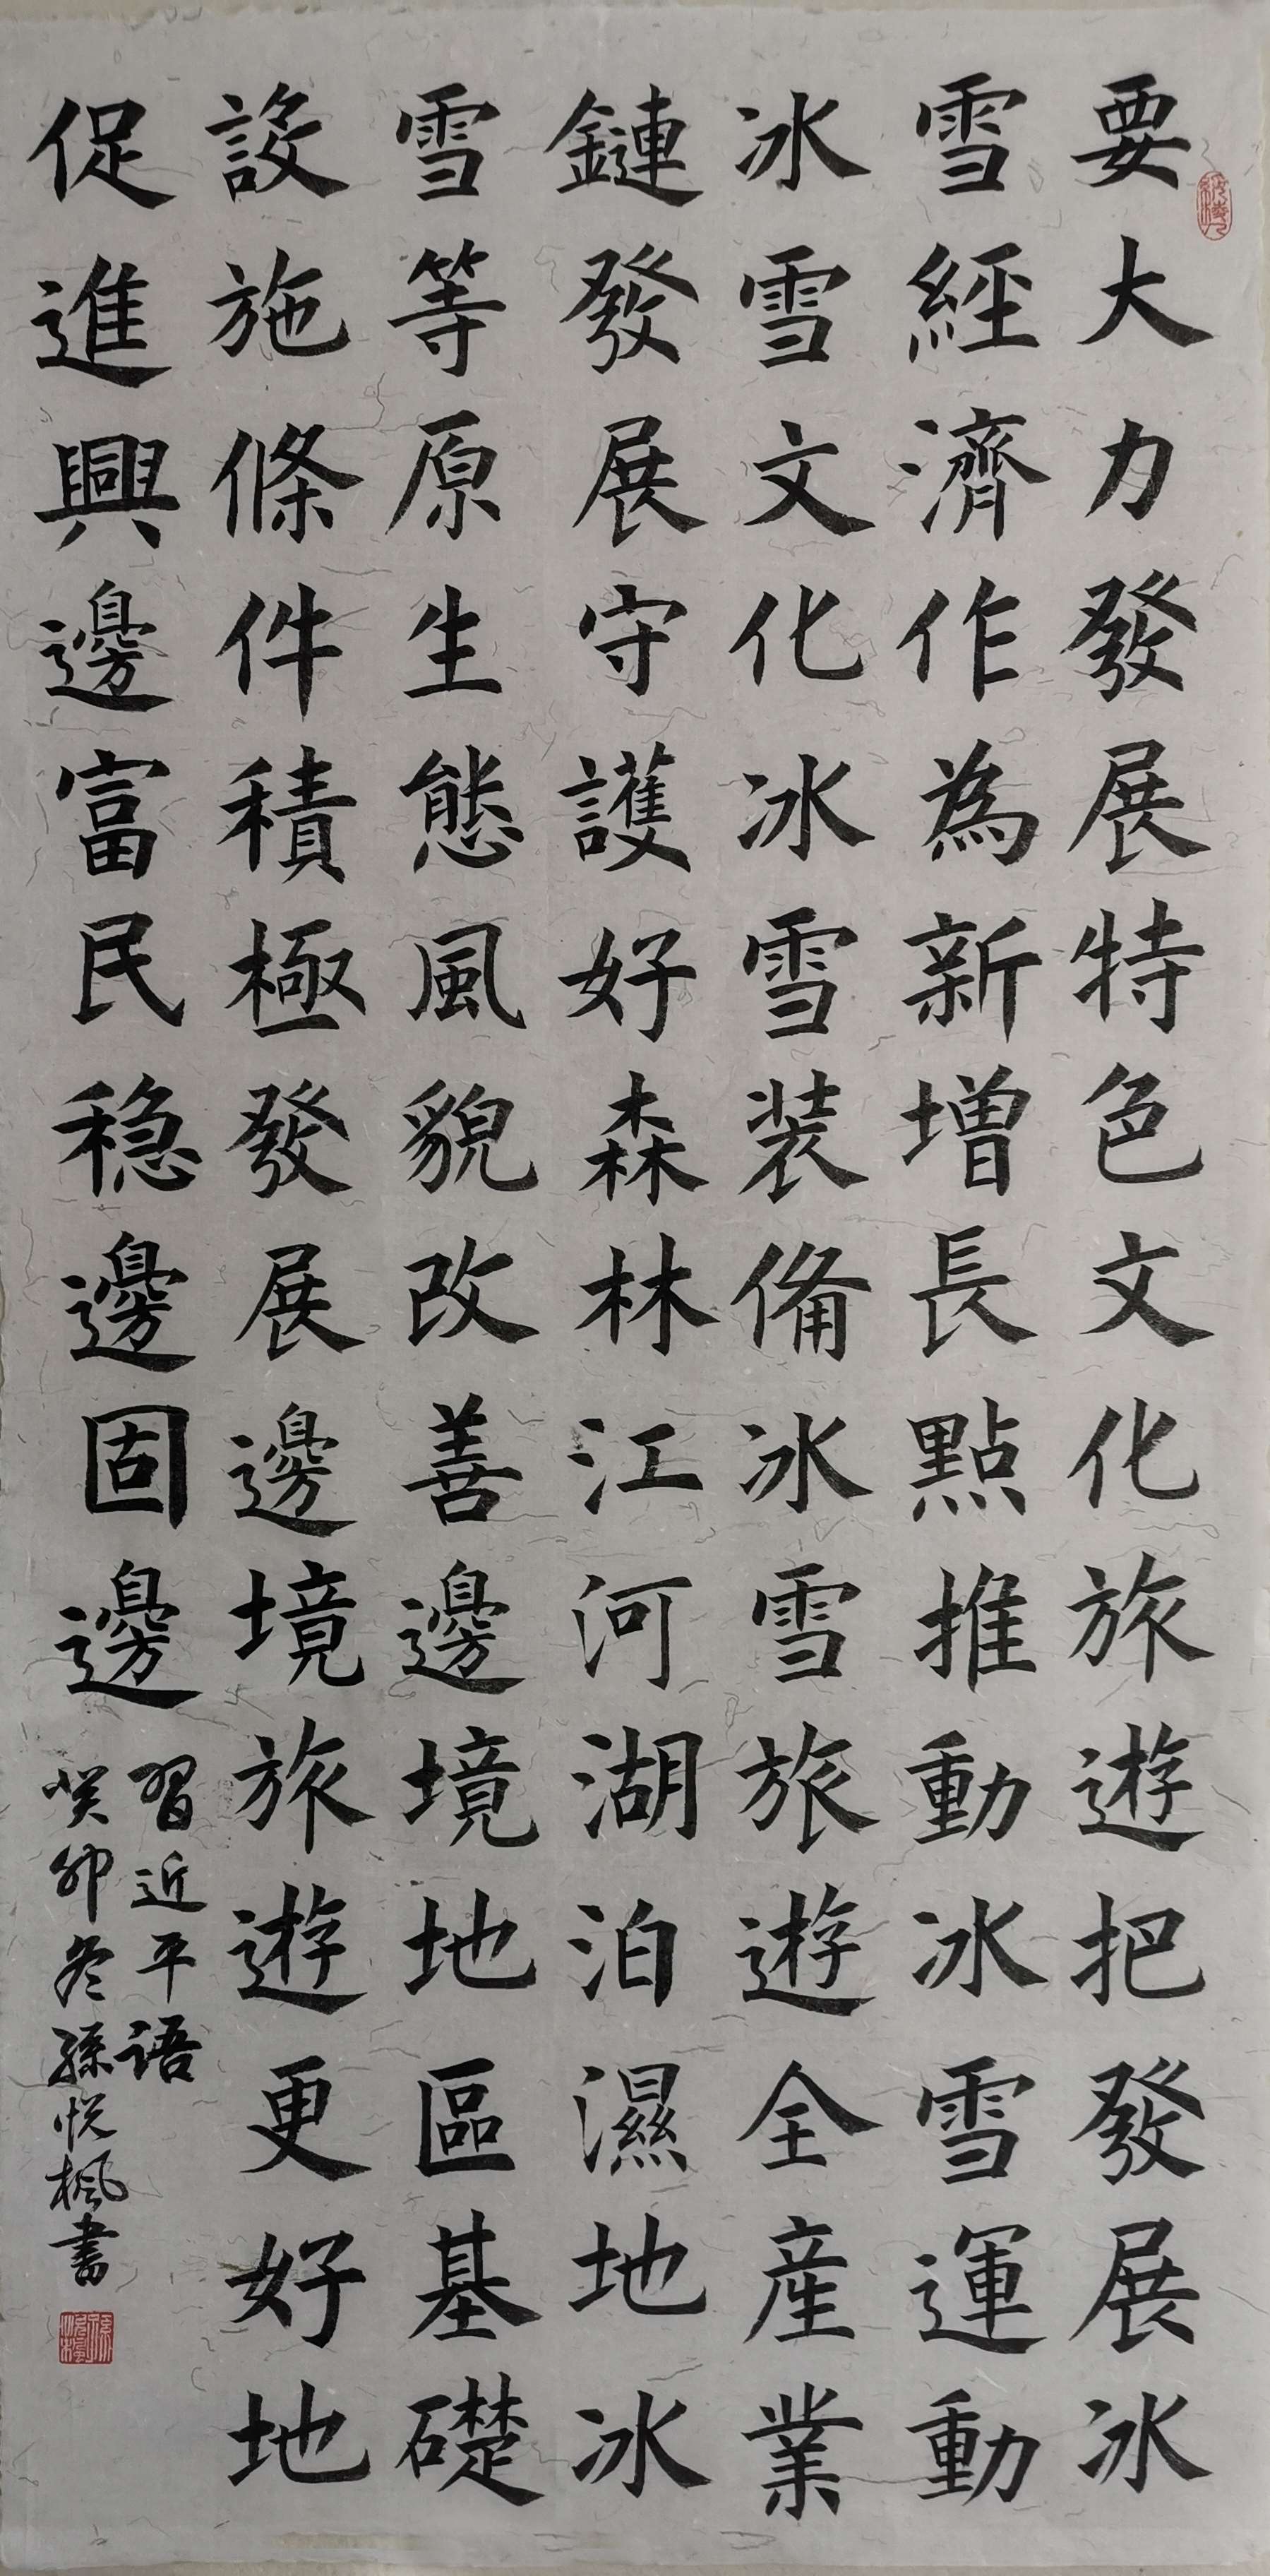 要大力發展特色文化旅遊把發展冰
雪經濟作為新增長點推動冰雪運動
冰雪文化冰雪装備冰雪旅遊全産業
鏈發展守護好森林江河湖泊濕地冰
雪等原生態風貌改善邊境地區基礎
設施條件積極發展邊境旅遊更好地
促進興邊富民稳邊固邊
習近平语
癸卯冬孫悦楓書